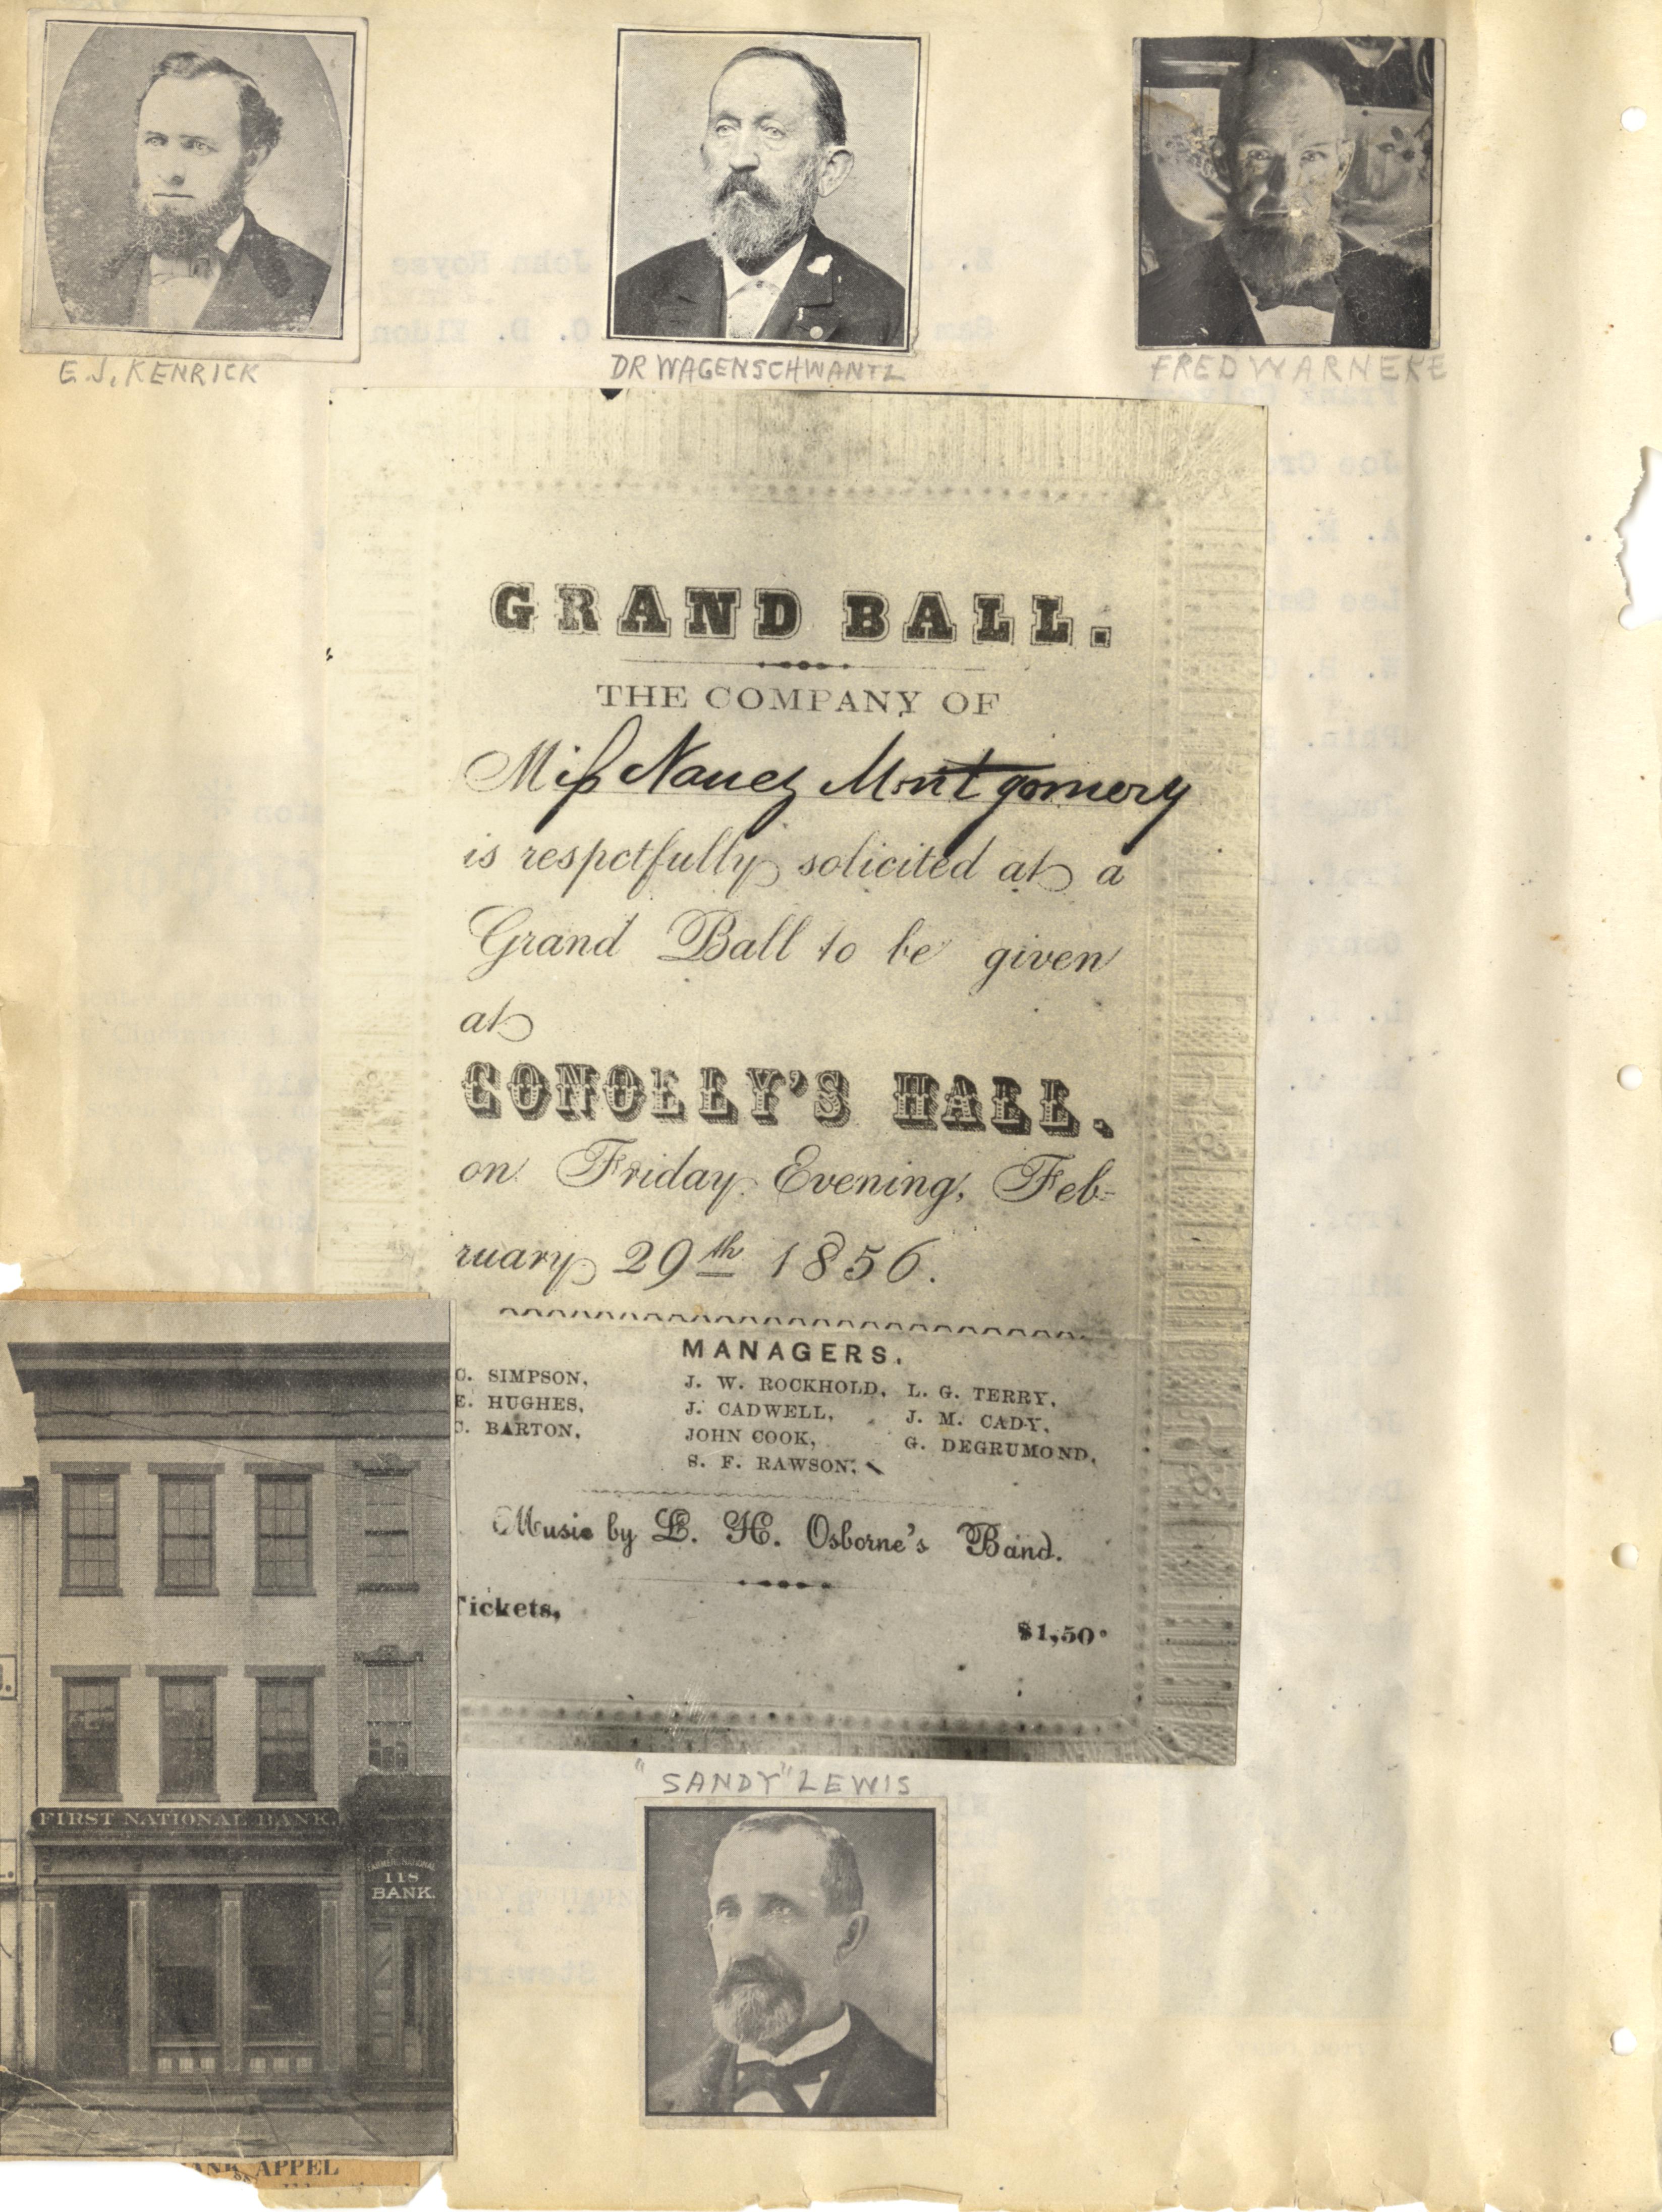 E.J. KENRICK
DR WAGENSCHWANTZ
FRED WARNEKE
GRAND BALL.
THE COMPANY OF
Miss Nancy Montgomery
is respctfully solicited at a
Grand Ball to be given
at
CONOLLY'S HALL.
on Friday Evening, Feb-
ruary 29th 1856.
MANAGERS.
C. SIMPSON, J. W. ROCKHOLD, L. G. TERRY,
E. HUGHES, J. CADWELL, J. M. CADY,
C. BARTON, JOHN COOK, G. DEGRUMOND,
S. F. RAWSON,
Music by L. H. Osborne's Band.
Tickets, $1,50
FIRST NATIONAL BANK.
118
BANK.
"SANDY" LEWIS
APPEL